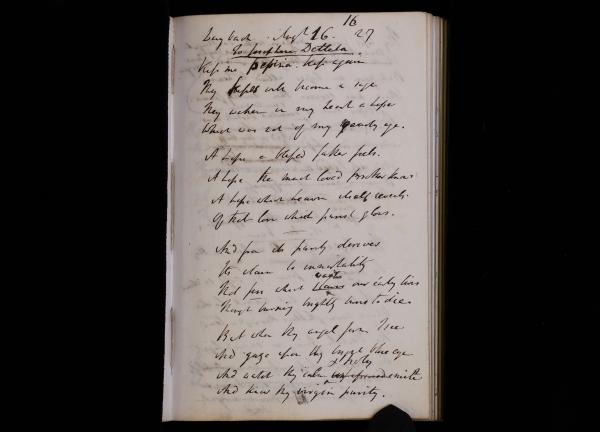 16
Augt 16. 27
To Josephine Dettela
Kiss me pepina. kiss again
Thy kisses will become a sage
They waken in my heart a hope
Which was not of my early age.
A hope a blessed father feels.
A hope the most loved Brother knows
A hope which heaven itself reveals
Of that love which purest glows.
And from its purity derives
Its claim to immortality
Not fires which waste our early lives
though burning brightly burns to die
But when thy angel form I see
And gaze upon thy bright blue eye
And watch thy calm & holy smile
And know thy virgin purity.